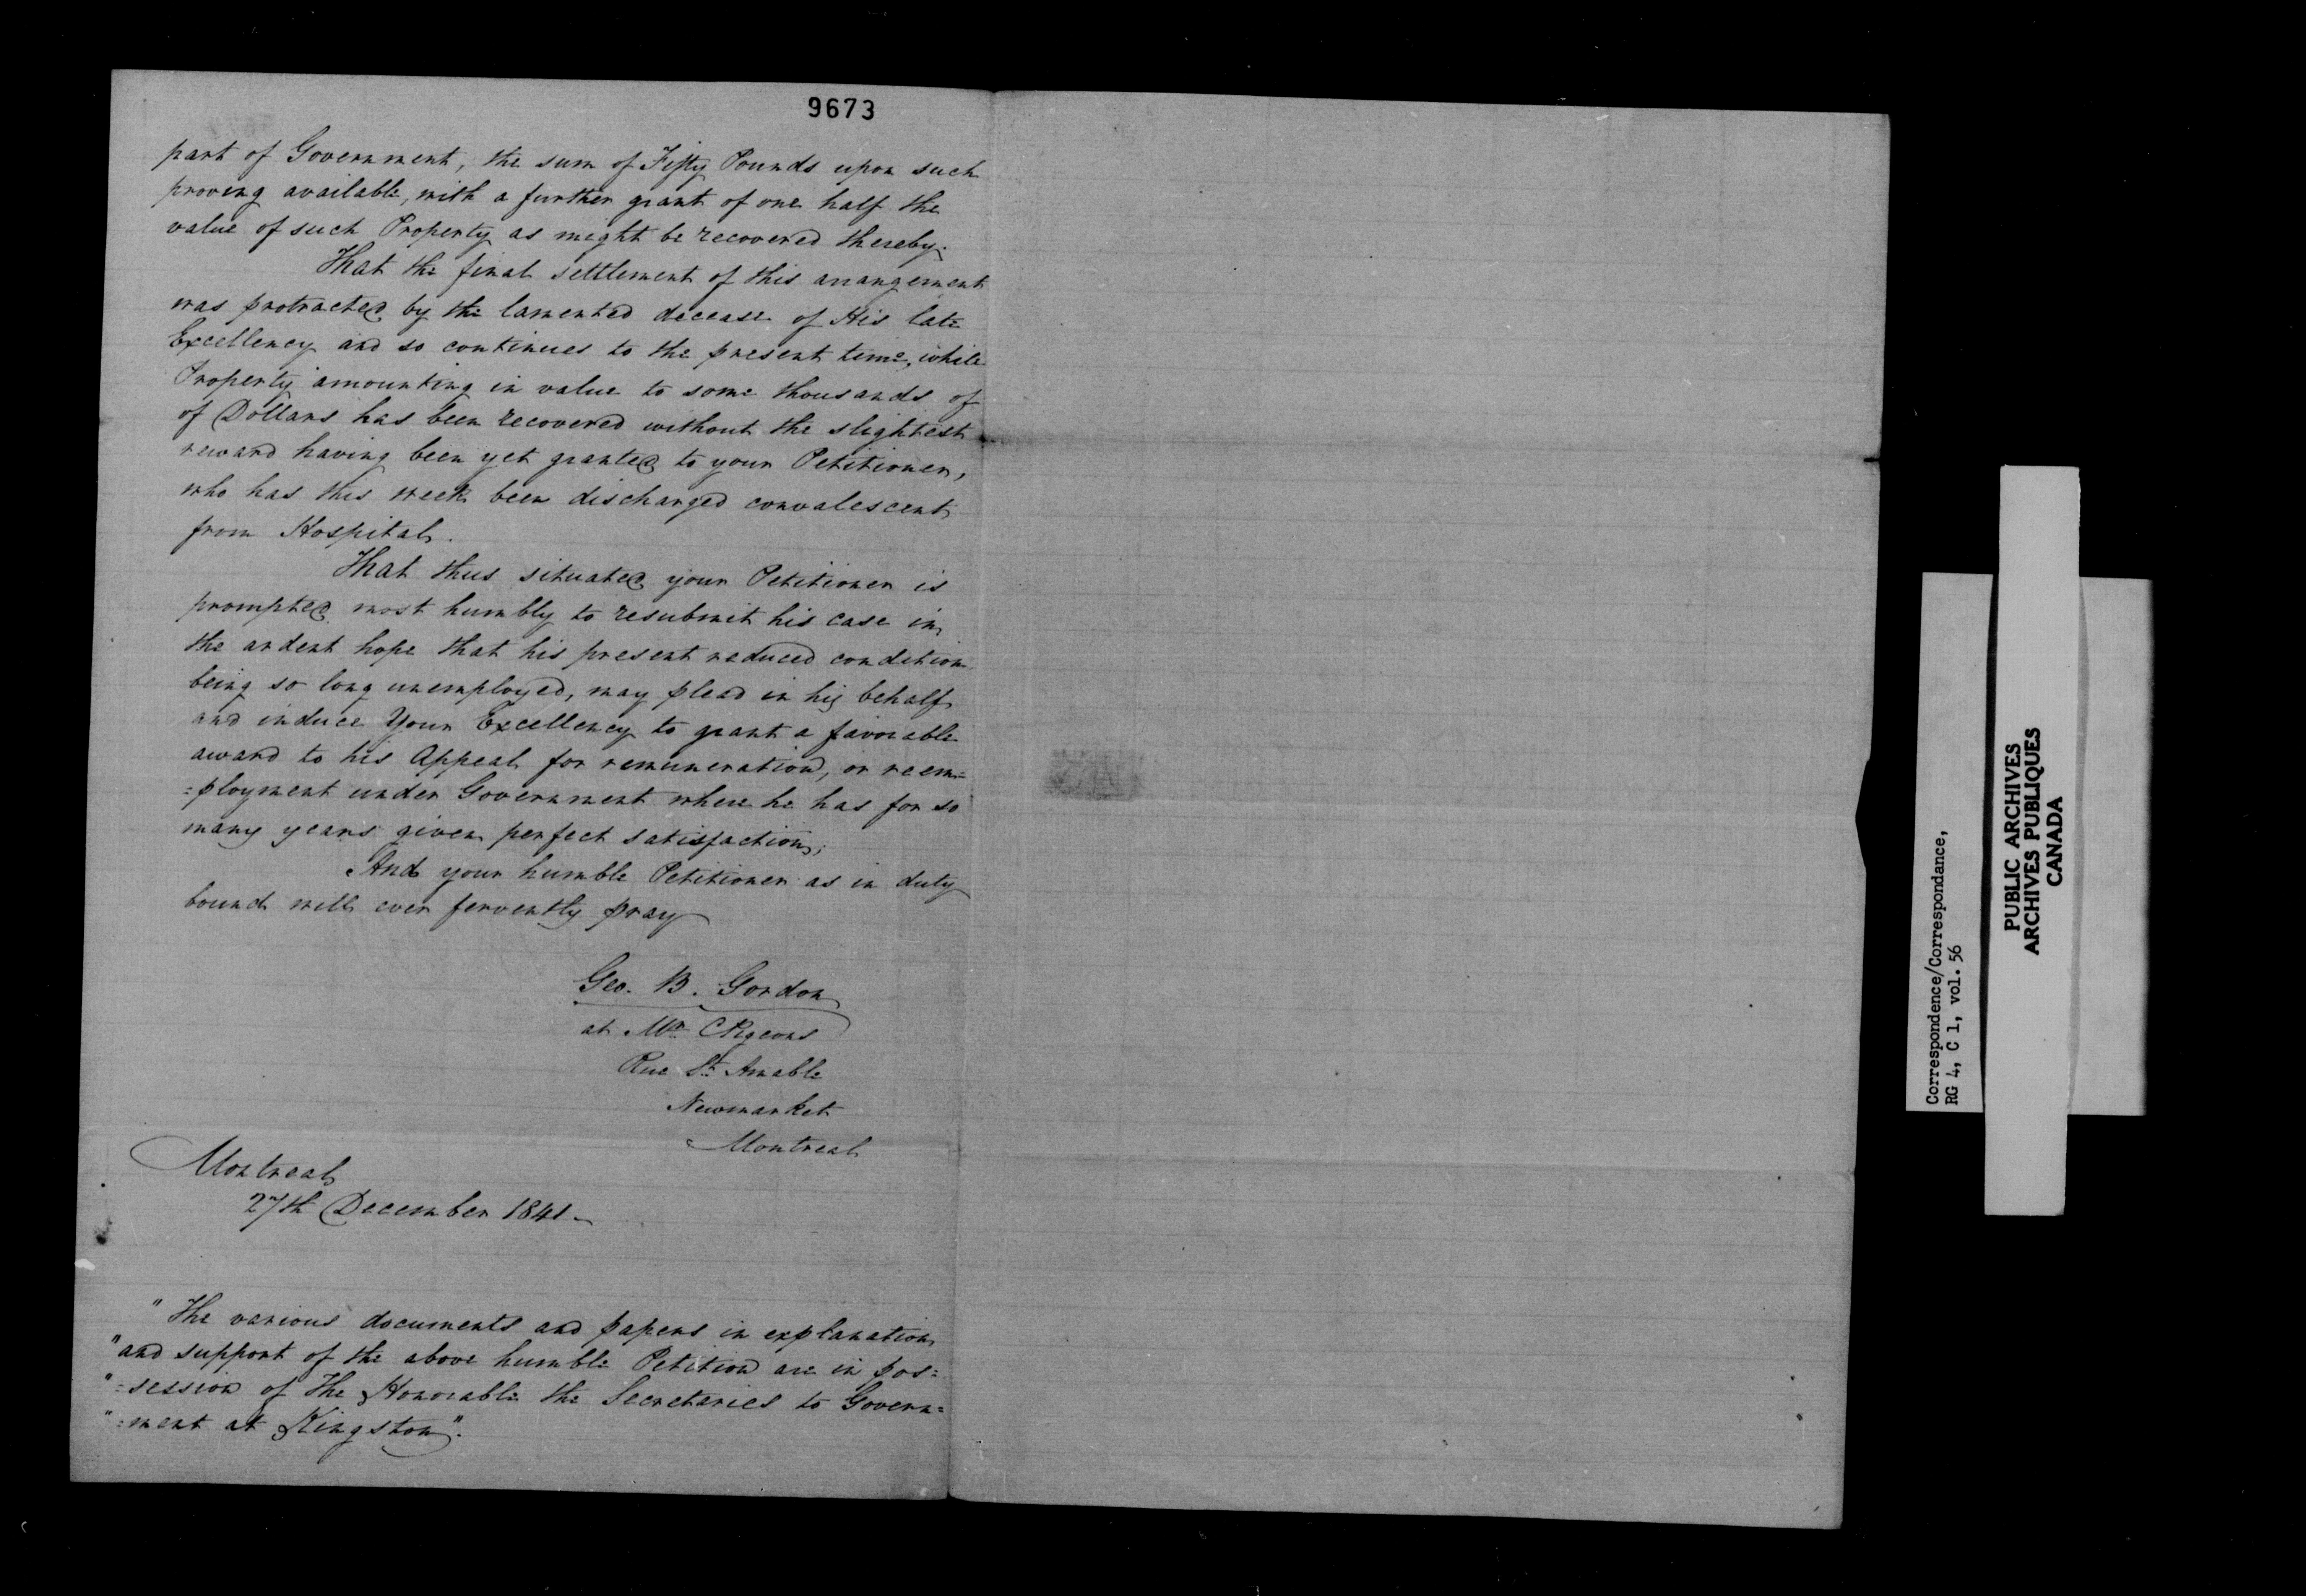 9673
part of Government, the sum of Fifty Pounds upon such
proving available, with a further grant of one half the
value of such Property as might be recovered thereby.
That the final settlement of this arrangement
was protracted by the lamented decease of His late
Excellency and so continues to the present time, while
Property amounting in value to some thousands of
of Dollars has been recovered without the slightest
reward having been yet granted to your Petitioner,
who has this week been discharged convalescent
from Hospital.
That thus situated your Petitioner is
prompted most humbly to resubmit his case in
the ardent hope that his present reduced condition
being so long unemployed, may plead in his behalf
and induce Your Excellency to grant a favorable
award to his Appeal for remuneration, or reem=
=ployment under Government where he has for so
many years given perfect satisfaction;
And your humble Petitioner as in duty
bound will ever fervently pray
Geo. B. Gordon
at Mr.
Rue St. Amable
Newmarket
Montreal
Montreal
27th December 1841
"The various documents and papers in explanation
"and support of the above humble Petition are in pos=
"=session of The Honorable the Secretaries to Govern=
"=ment at Kingston".
Correspondence/Correspondance,
RG 4, C 1, vol. 56
PUBLIC ARCHIVES
ARCHIVES PUBLIQUES
CANADA